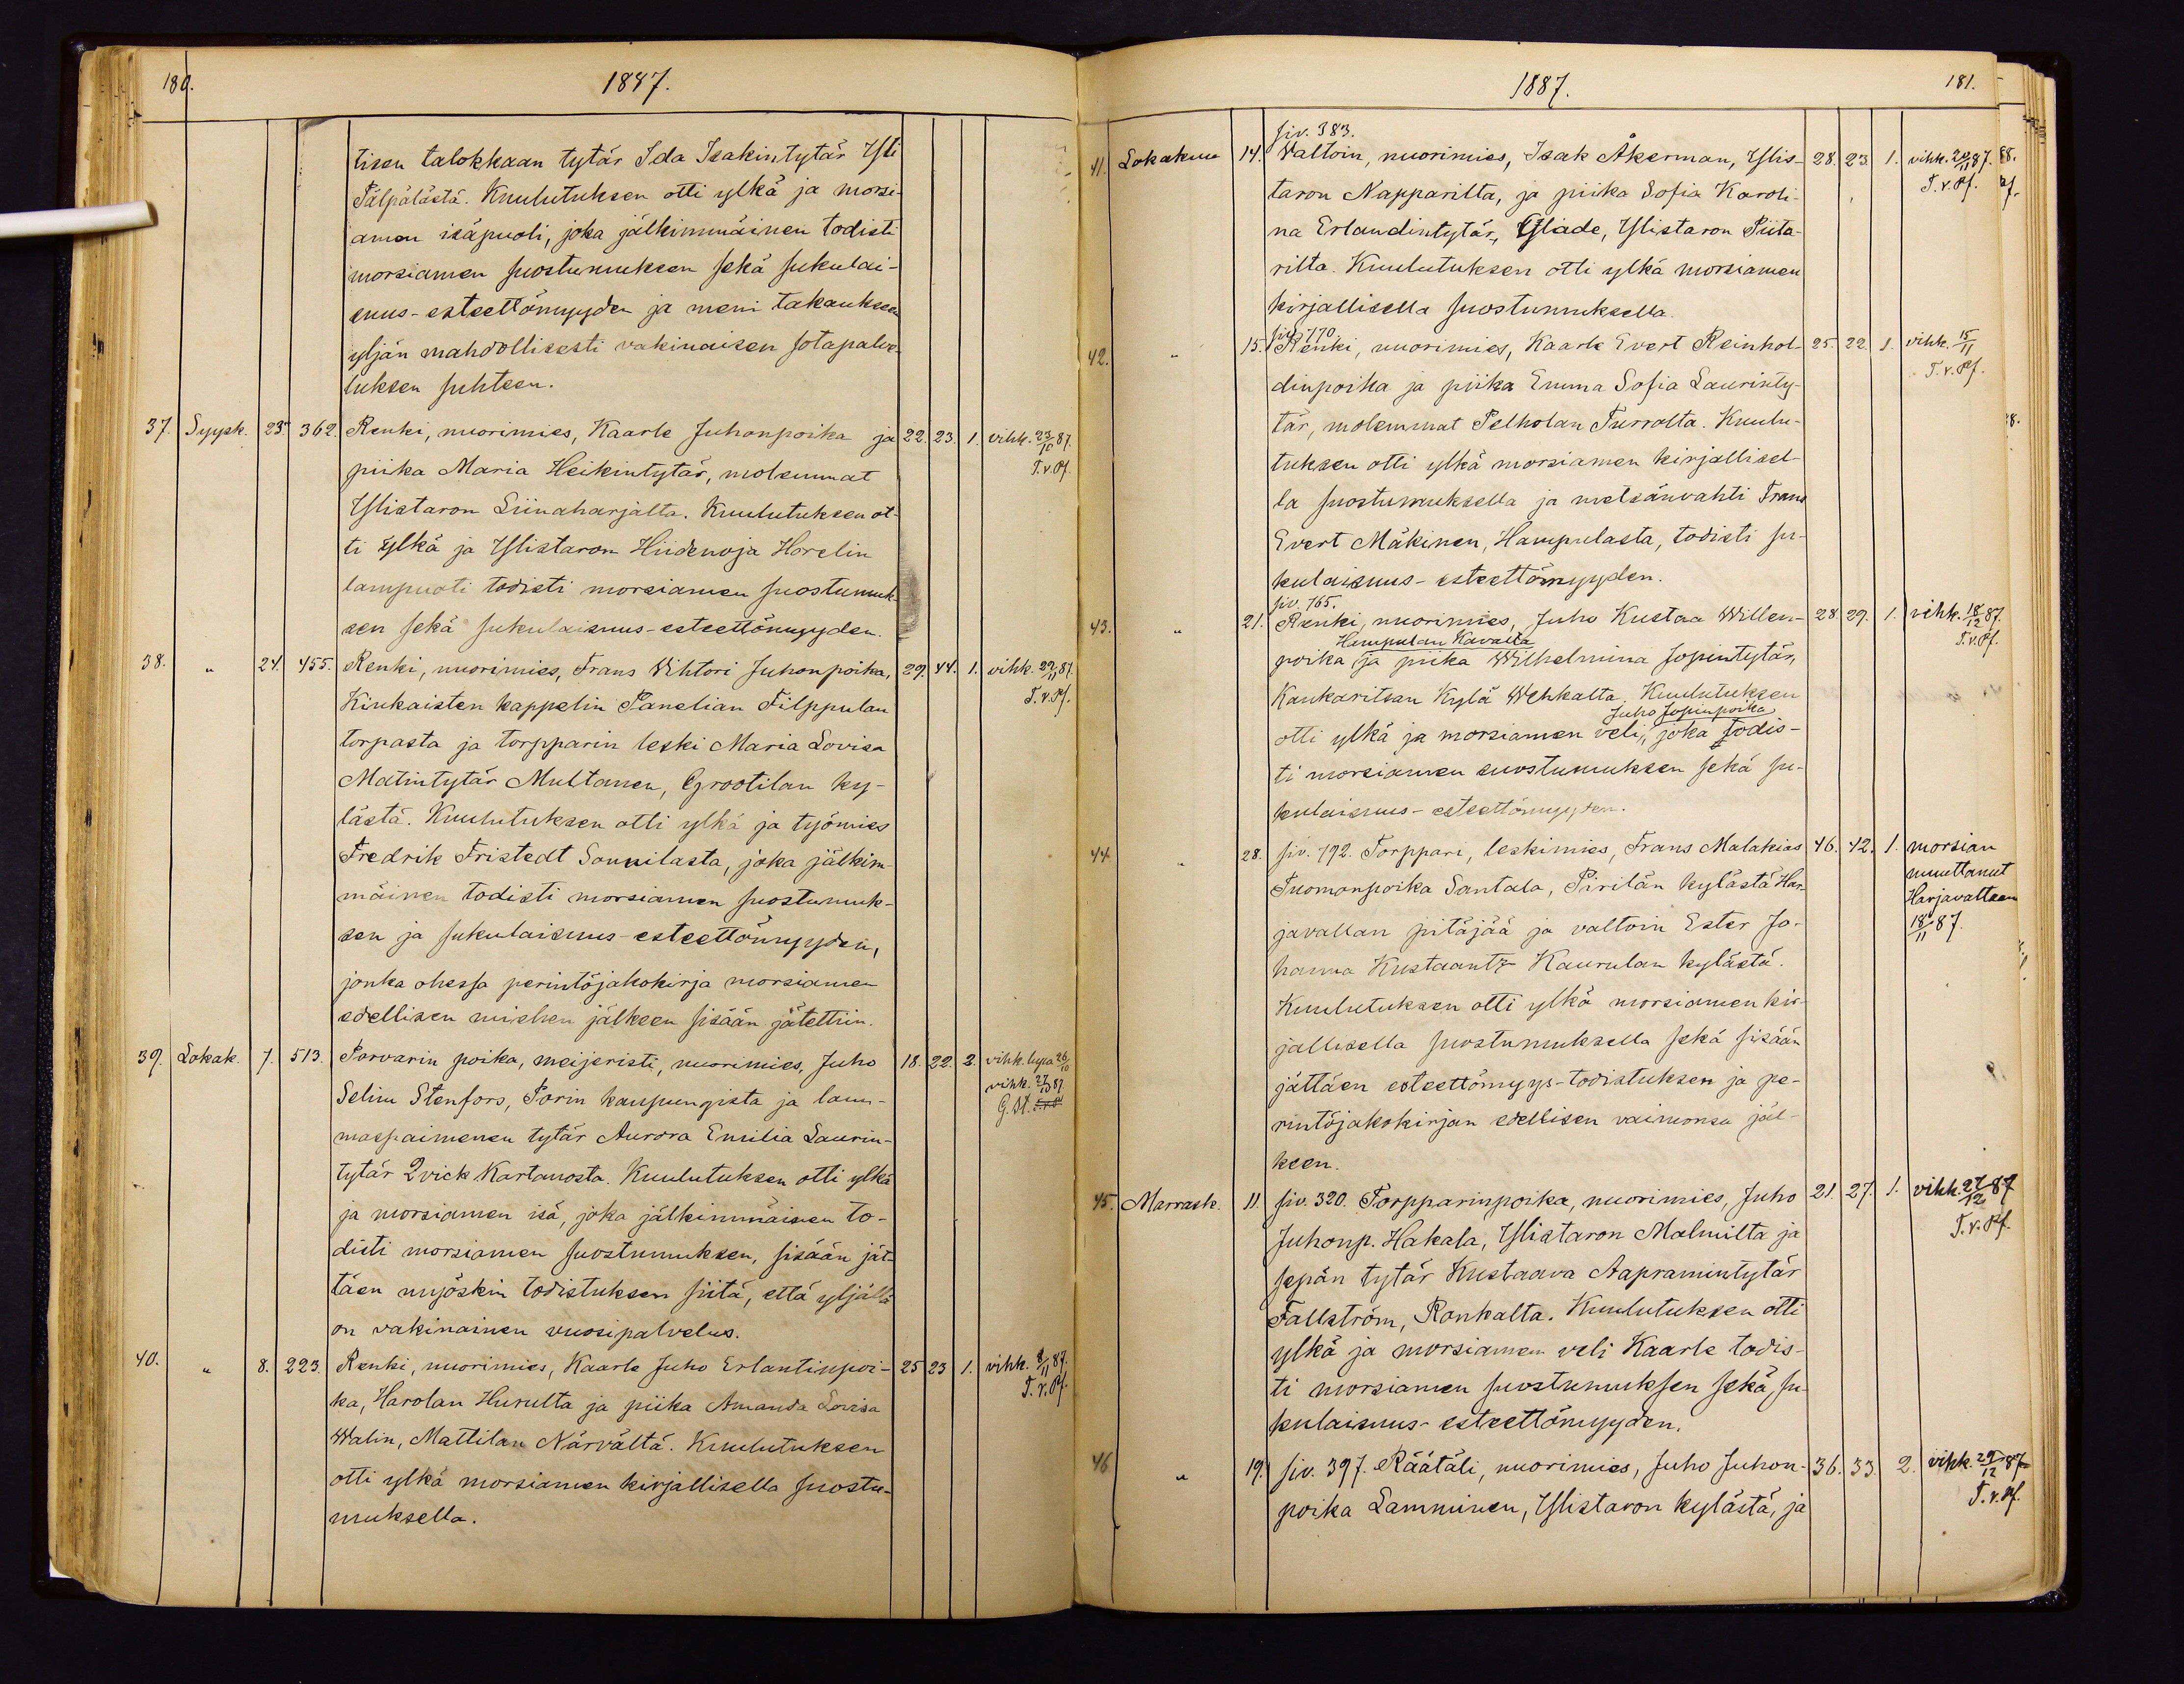 180.
1887.
tisen talokkaan tytär Ida Isakintytär Yli
Pälpälästä. Kuulutuksen otti ylkä ja morsi-
amen isäpuoli, joka jälkimmäinen todisti
morsiamen suostumuksen sekä sukulai-
suus-esteettömyyden ja meni takaukseen
yljän mahdollisesti vakinaisen sotapalve-
luksen suhteen.
37. Syysk. 23. 362. Renki, nuorimies, Kaarle Juhonpoika ja 22. 23. 1. vihk. 23/10 87.
piika Maria Heikintytär, molemmat T.v.Pf.
Ylistaron Liinaharjalta. Kuulutuksen ot-
ti ylkä ja Ylistaron Hiidenoja Horelin
lampuoti todisti morsiamen suostumuk-
sen sekä sukulaisuus-esteettömyyden.
38. " 24. 455. Renki, nuorimies, Frans Vihtori Juhonpoika, 29. 44. 1. vihk. 22/11 87.
Kiukaisten kappelin Panelian Filppulan T.v.Pf.
torpasta ja torpparin leski Maria Lovisa
Matintytär Multanen, Grootilan ky-
lästä. Kuulutuksen otti ylkä ja työmies
Fredrik Fristedt Sonnilasta, joka jälkim-
mäinen todisti morsiamen suostumuk-
sen ja sukulaisuus-esteettömyyden,
jonka ohessa perintöjakokirja morsiamen
edellisen miehen jälkeen sisään jätettiin.
39. Lokak. 7. 513. Porvarin poika, meijeristi, nuorimies, Juho 18. 22. 2. vihk. lupa 26/10
Selim Stenfors, Porin kaupungista ja lam- vihk. 27/10 87.
maspaimenen tytär Aurora Emilia Laurin- G. St. T.v.Pf.
tytär Qvick Kartanosta. Kuulutuksen otti ylkä
ja morsiamen isä, joka jälkimmäinen to-
disti morsiamen suostumuksen, sisään jät-
täen myöskin todistuksen siitä, että yljällä
on vakinainen vuosipalvelus.
40. " 8. 223. Renki, nuorimies, Kaarle Juho Erlantinpoi- 25 23 1. vihk. 8/11 87.
ka, Harolan Hurulta ja piika Amanda Lovisa T.v.Pf.
Walin, Mattilan Närvältä. Kuulutuksen
otti ylkä morsiamen kirjallisella suostu-
muksella.
1887.
181.
siv. 383.
41. Lokakuu 14. Valtoin, nuorimies, Isak Åkerman, Ylis- 28. 23. 1. vihk. 20/11 87.
taron Napparilta, ja piika Sofia Karoli- T.v.Pf.
na Erlandintytär, Glade, Ylistaron Piita-
rilta. Kuulutuksen otti ylkä morsiamen
kirjallisella suostumuksella.
siv. 170.
42. " 15. Renki, nuorimies, Kaarle Evert Reinhol- 25. 22. 1. vihk. 15/11
dinpoika ja piika Emma Sofia Laurinty- T.v.Pf.
tär, molemmat Pelholan Turrolta. Kuulu-
tuksen otti ylkä morsiamen kirjallisel-
la suostumuksella ja metsänvahti Frans
Evert Mäkinen, Hampulasta, todisti su-
kulaisuus-esteettömyyden.
siv. 165.
43. " 21. Renki, nuorimies, Juho Kustaa Willen- 28. 29. 1. vihk. 18/12 87.
Hampulan Kavalta T.v.Pf.
poika ja piika Wilhelmina Jopintytär,
Kaukaritsan Kylä Wehkalta. Kuulutuksen
Juho Jopinpoika
otti ylkä ja morsiamen veli, joka todis-
ti morsiamen suostumuksen sekä su-
kulaisuus-esteettömyyden.
44. " 28. siv. 192. Torppari, leskimies, Frans Malakias 46. 42. 1. morsian
Tuomonpoika Santala, Pirilän kylästä Har- muuttanut
javallan pitäjää ja valtoin Ester Jo- Harjavaltaan
hanna Kustaantr Kaurulan kylästä. 18/11 87.
Kuulutuksen otti ylkä morsiamen kir-
jallisella suostumuksella sekä sisään
jättäen esteettömyys-todistuksen ja pe-
rintöjakokirjan edellisen vaimonsa jäl-
keen.
45. Marrask. 11. siv. 320. Torpparinpoika, nuorimies, Juho 21. 27. 1. vihk. 27/12 87
Juhonp. Hakala, Ylistaron Malmilta ja T.v.Pf.
sepän tytär Kustaava Aapramintytär
Fallström, Ronkalta. Kuulutuksen otti
ylkä ja morsiamen veli Kaarle todis-
ti morsiamen suostumuksen sekä su-
kulaisuus-esteettömyyden.
46 " 19. siv. 397. Räätäli, nuorimies, Juho Juhon- 36. 33. 2. vihk. 29/12 87
poika Lamminen, Ylistaron kylästä, ja T.v.Pf.